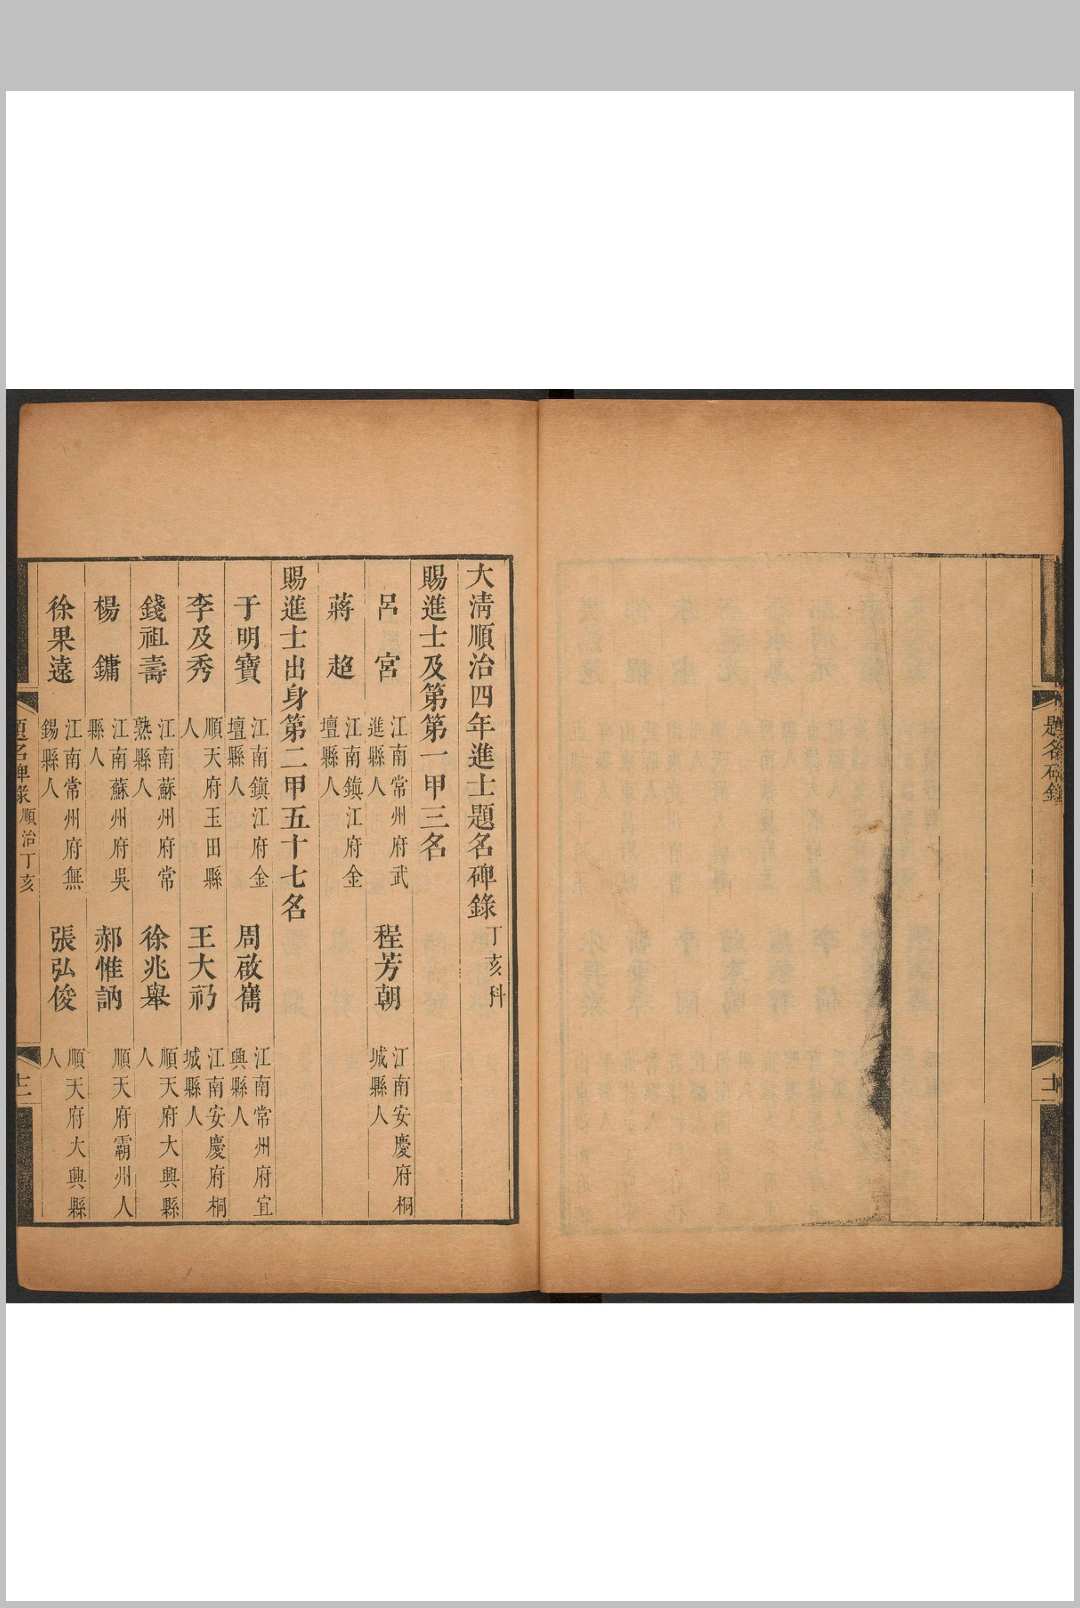 題名碑錄
大淸順治四年進士題名碑錄丁亥科
賜進士及第第一甲三名
呂宮 江南常州府武進縣人 程芳朝 江南安慶府桐城縣人
蔣超 江南鎭江府金壇縣人
賜進士出身第二甲五十七名
于明寶 江南鎭江府金壇縣人 周啟嶲 江南常州府宜興縣人
李及秀 順天府玉田縣人 王大礽 江南安慶府桐城縣人
錢祖壽 江南蘇州府常熟縣人 徐兆舉 順天府大興縣人
楊鏞 江南蘇州府吳縣人 郝惟訥 順天府霸州人
徐果遠 江南常州府無錫縣人 張弘俊 順天府大興縣人
題名碑錄 順治丁亥